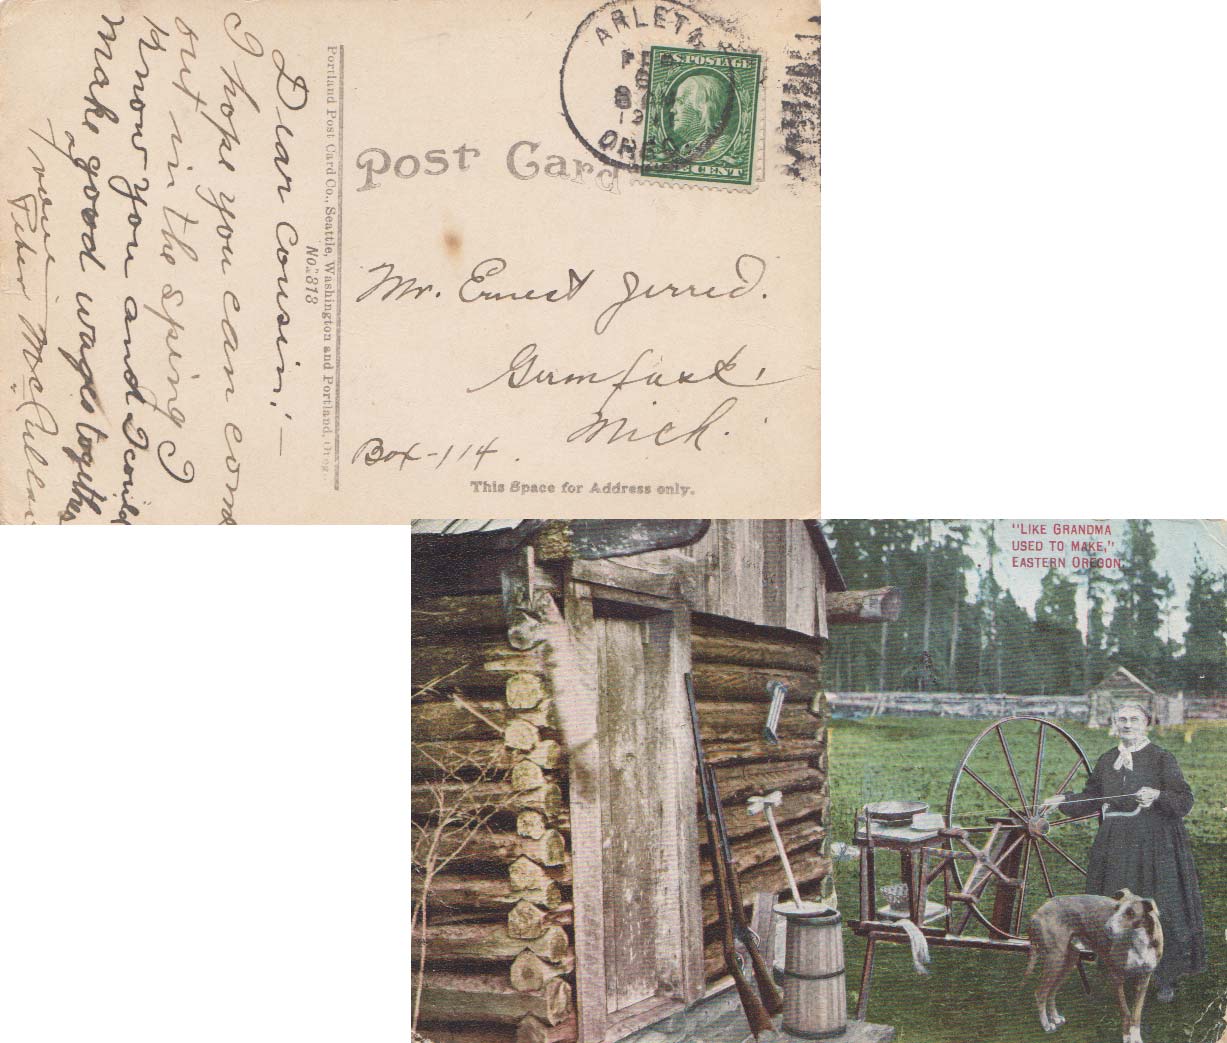 ARLETA
FEB
6
8
191
OREG.
U.S. POSTAGE
CENT
Post Card
Portland Post Card Co., Seattle, Washington and Portland, Oreg.
No. 818
Dear Cousin! —
I hope you can come
out in the spring I
know you and I could
make good wages together
yours
Peter McCullan
Mr. Ernest Jerred.
Germfask,
Mich.
Box-114.
This Space for Address only.
"LIKE GRANDMA
USED TO MAKE,"
EASTERN OREGON.